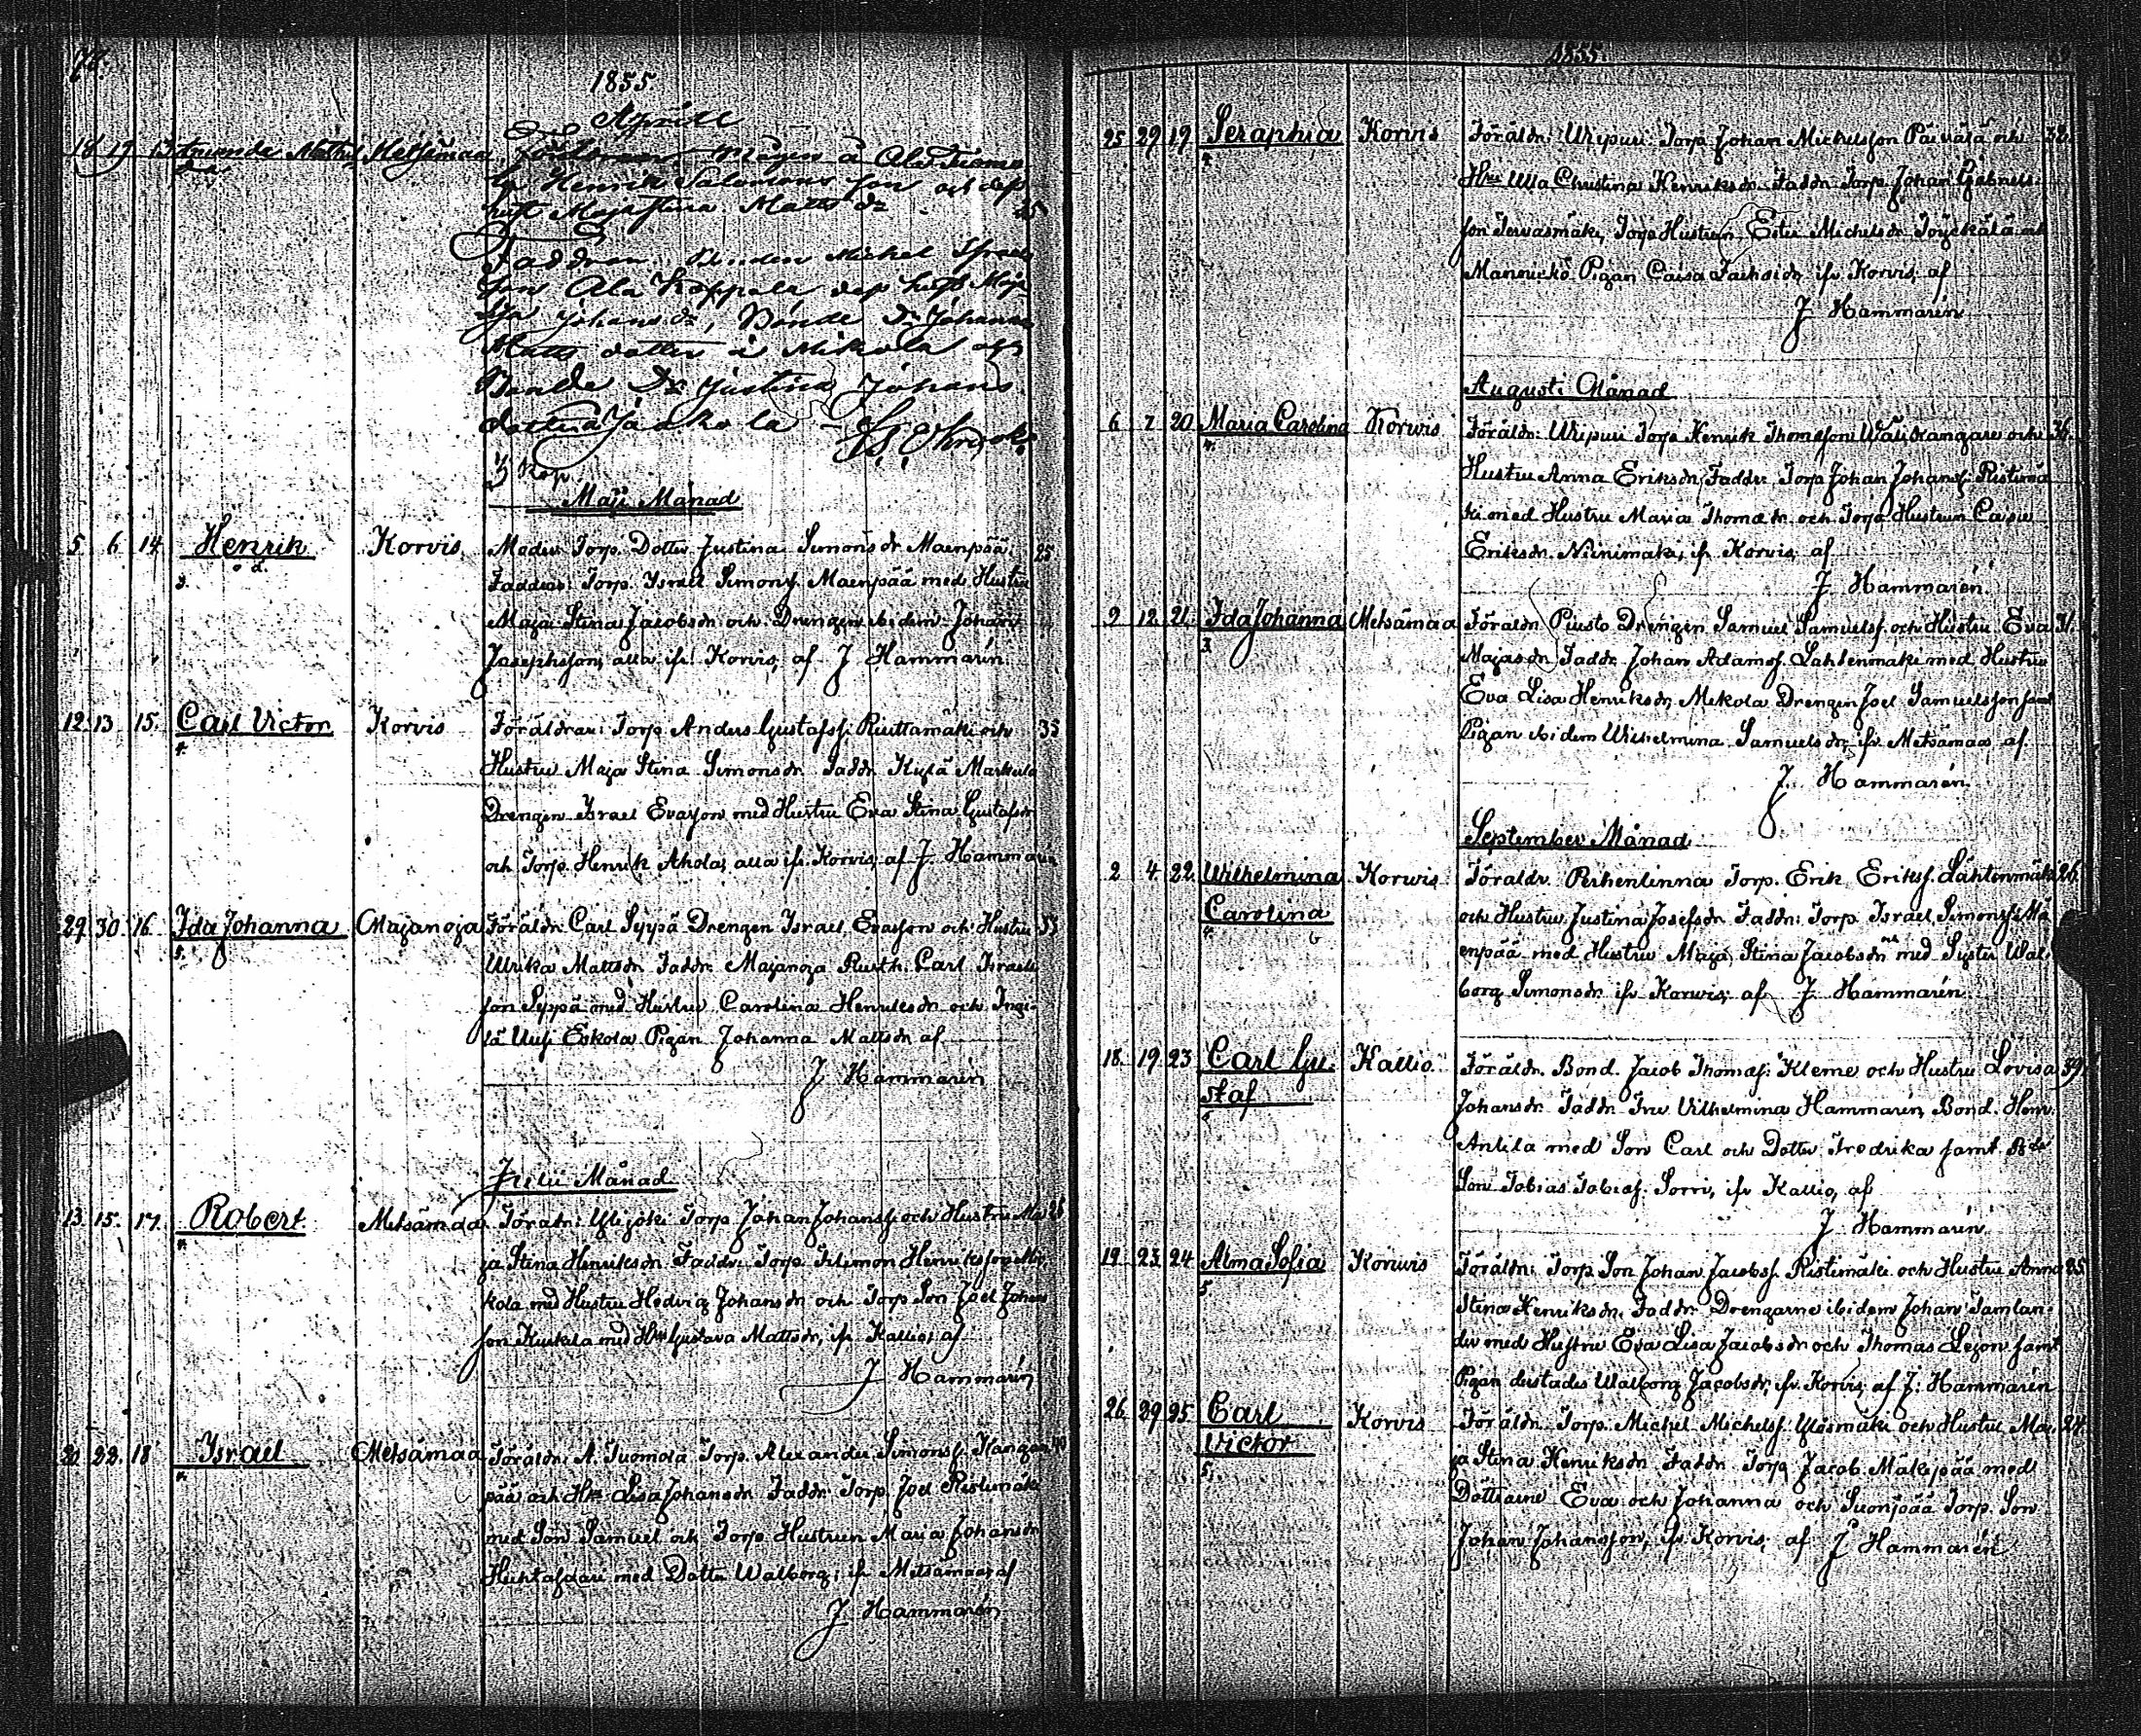 1855
Aprill
18 19 13 Amanda Mathil Metsämaa Mågen å Ala Tuomo
da la Henrik Salomons son och dess
hust Maja Stina Matts dr 35
Faddran Bonden Michel Israels
son Ala Koppala dess hust Maja
Johans dr, Bonde Dr Johanna
Matts dotter i Mikola och
Bonde Dr Justina Johans
dotter Jaakola
Maji Månad
5 6 14 Henrik Korvis Moder Torp. Dotter Justina Simonsdr Maenpää 25
o ä. Faddrar: Torp. Israel Simonss. Maenpää med Hustru
3. Maja Stina Jacobsdr och Drengen ibidem Johan
Josephsson, alla ifr. Korvis, af J Hammarén
12 13 15. Carl Victor Korvis Föräldrar: Torp Anders Gustafss. Riuttamäki och 35
4. Hustru Maja Stina Simonsdr Faddr. Kylä Markula
Drengen Israel Evasson med Hustru Eva Stina Gustafsdr
och Torp. Henrik Ahola, alla ifr. Korvis, af J Hammarén
29 30 16. Ida Johanna Majanoja Föräldr. Carl Syppä Drengen Israel Evasson och Hustru 33
5. Ulrika Mattsdr Faddr. Majanoja Rusth. Carl Israels
son Syppä med Hustru Carolina Henricsdr och Inge-
lä Uusi Eskola Pigan Johanna Mattsdr af
J Hammarén
Julii Månad
13. 15. 17. Robert Metsämaa Föräldr: Ylijoki Torp Johan Johanss. och Hustru Ma 26
4. ja Stina Henriksdr Faddr: Torp. Filemon Henriksson Mi
kola med Hustru Hedvig Johansdr och Torp Son Joel Johans
son Kuckila med Hru Gustava Mattsdr, ifr. Kallio, af
J Hammarén
20. 22. 18 Israel Metsämaa Föräldr: A. Tuomola Torp. Alexander Simonss. Kangan 40
4. pää och Hru Lisa Johansdr. Faddr: Torp. Joel Ristimäki
med Son Samuel och Torp. Hustrun Maria Johansdr
med Dotter Walborg; ifr Metsämaa, af
J Hammarén
1855
25 29 19. Seraphia Korvis Föräldr: Uripuri Torp. Johan Michelsson Päivälä och 32.
4. Hru Ulla Christina Henriksdr. Faddr. Torp. Johan Gabriels-
son Tervasmäki, Torp Hustrun Ester Michelsdr och
Pigan Caisa ifr Korvis, af
J Hammarén
Augusti Månad
6 7 20. Maria Carolina Korwis Föräldr: Uripuri Torp Henrik Thomasson och 36.
4. Hustru Anna Eriksdr, Faddr Torp Johan Johanss. Ristimä
ki med Hustru Maria Thomædr. och Torp Hustrun Caisa
Eriksdr. Niinimäki, ifr Korvis, af
J Hammarén.
9 12. 21. Ida Johanna Metsämaa Föräldr Puisto Drengen Samuel Samuelss. och Hustru Eva 31.
3. Majasdr, Faddr. Johan Adamss. Lahtenmäki med Hustru
Eva Lisa Henriksdr, Mekola Drengen Joel Samuelsson samt
Pigan ibidem Wilhelmina Samuelsdr, ifr Metsämaa, af
J. Hammarén
September Månad
2 4 22. Wilhelmina Korwis Föräldr. Perhenlinna Torp. Erik Erikss. Lähtenmäki 26.
Carolina och Hustru Justina Josefsdr Faddr: Torp. Israel Simonss. Mä
4. enpää med Hustru Maja Stina Jacobsdr med Syster Wal-
borg Simonsdr ifr Korwis; af J Hammarén
18. 19 23. Carl Gu- Kallio. Föräldr. Bond. Jacob Thomass: Kleme och Hustru Lovisa 39.
staf Johansdr Faddr Fru Vilhelmina Hammarén, Bond. Henr.
Antila med Son Carl och Dotter Fredrika samt Bde
Son Tobias Tobiass. Sorri, ifr Kallio, af
J Hammarén
19. 23. 24. Alma Sofia Korwis Föräldr: Torp Son Johan Jacobss. Ristimäki och Hustru Anna 25
5. Stina Henriksdr, Faddr. Drengarne ibidem Johan Tamlan-
der med Hustru Eva Lisa Jacobsdr och Thomas Legon samt
Pigan Walborg Jacobsdr, ifr. Korvis af J: Hammarén
26. 29 25. Carl Korvis Föräldr. Torp. Michel Michelss. Ylösmäki och Hustru Ma- 24.
Victor ja Stina Henriksdr. Faddr. Torp. Jacob Mäkipää med
5. Döttrarne Eva och Johanna och Suonpää Torp. Son
Johan Johansson, ifr. Korvis; af J Hammarén